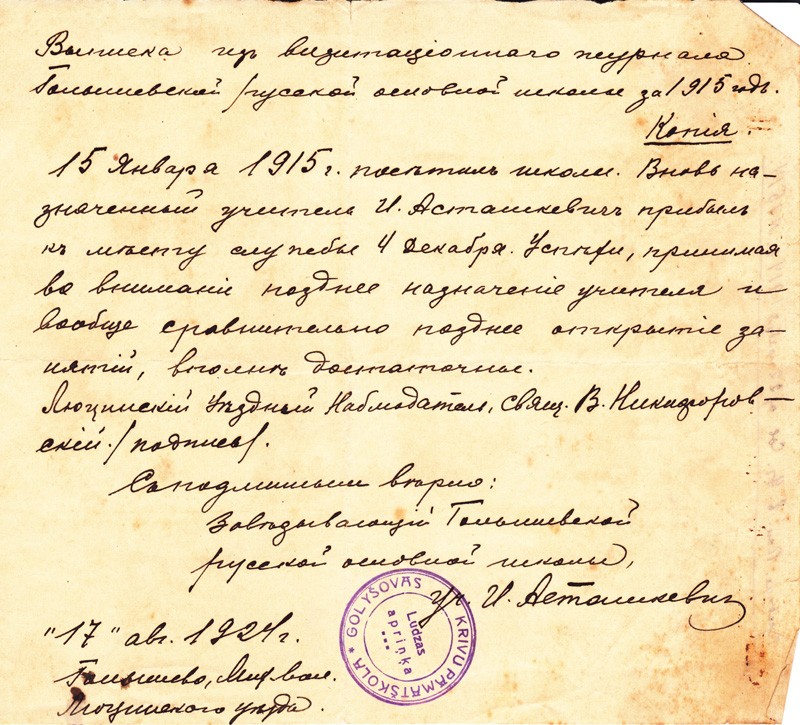 Выписка изъ визитаціоннаго журнала
Голышевской русской основной школы за 1915 годъ.
Копія.
15 Января 1915 г. посѣтилъ школу. Вновь на-
значенный учитель И. Асташкевичъ прибылъ
къ мѣсту службы 4 Декабря. Успѣхи, принимая
во вниманіе позднее назначеніе учителя и
вообще сравнительно позднее открытіе за-
нятій, вполнѣ достаточные.
Люцинскій Уѣздный Наблюдатель, свящ. В. Никифоров-
скій. /подпись/.
Съ подлиннымъ вѣрно:
Завѣдывающій Голышевской
русской основной школы,
уч. И. Асташкевичъ
"17" авг. 1924 г.
Голышево, вол.
Люцинского уѣзда.
GOLYŠOVAS KRIVU PAMATŠKOLA *
Ludzas
apriņķa